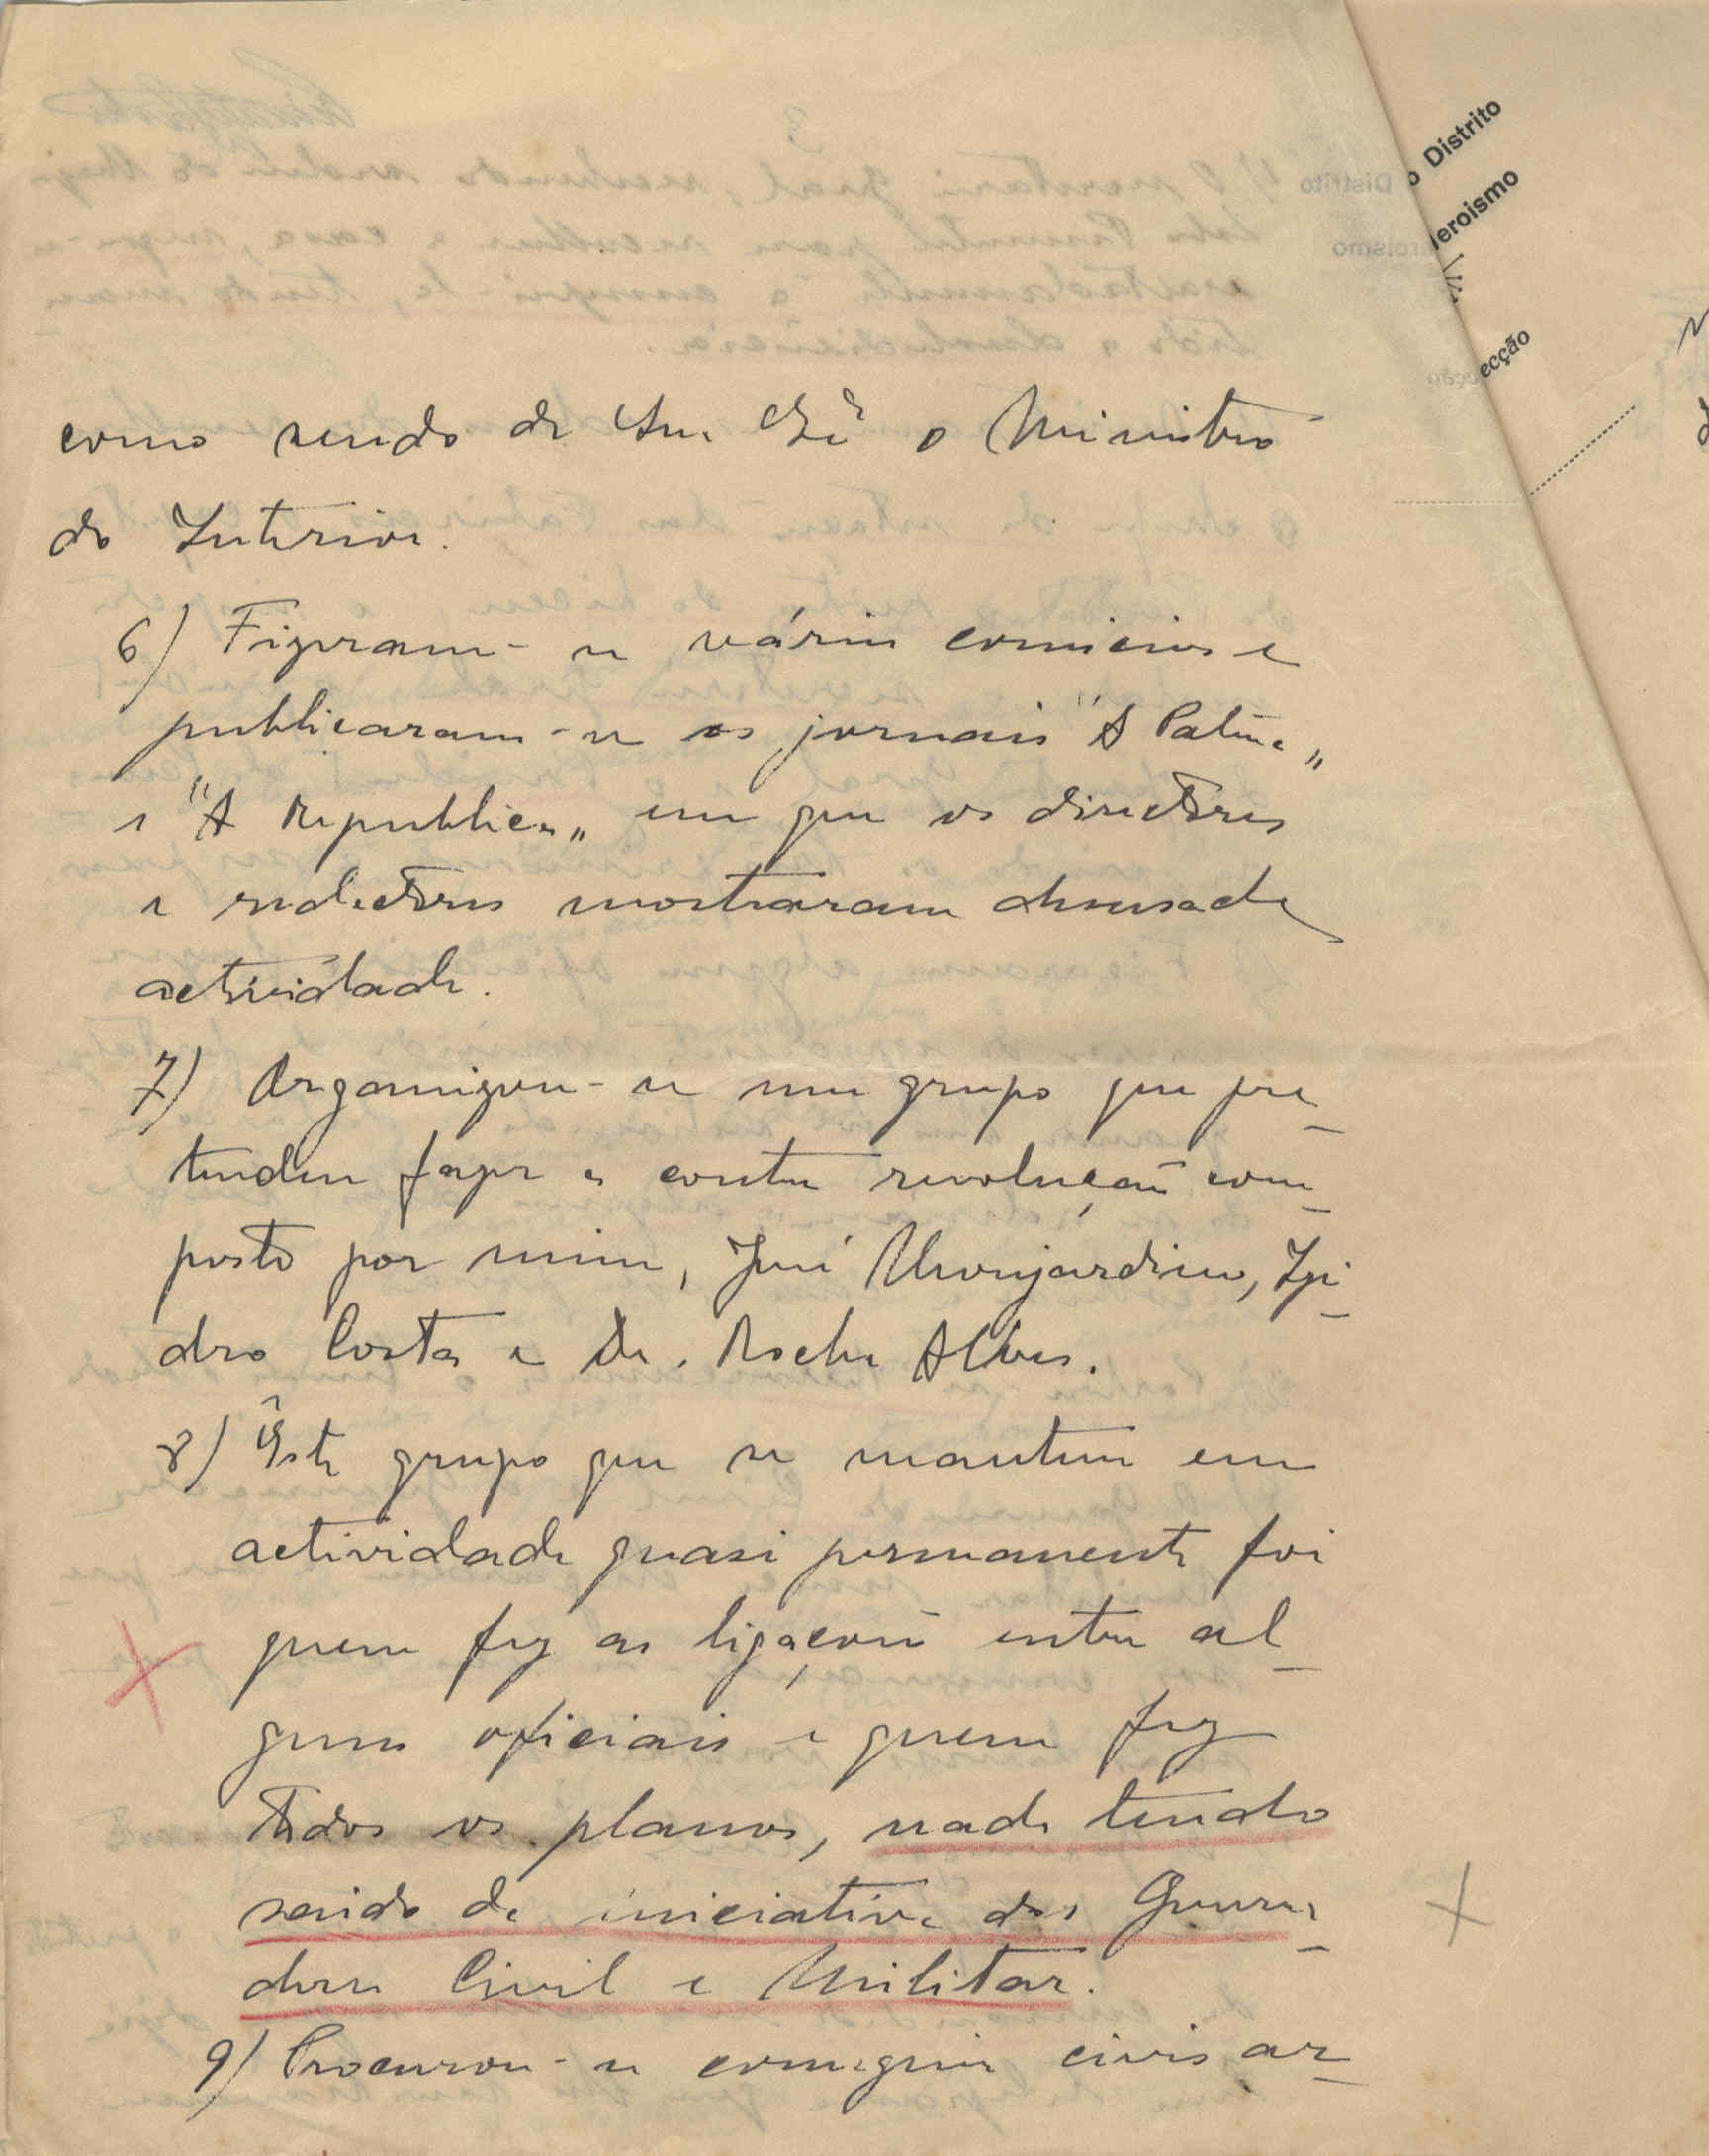 como sendo de Sua Exª o Ministro
do Interior.
6) Fizeram-se vários comicios e
publicaram-se os jornais "A Patria„
e "A Republica„ em que os directores
e redactores mostraram desusada
actividade.
7) Organizou-se um grupo que pre-
tendeu fazer a contra revolução com-
posto por mim, José Monjardino, Izi-
dro Costa e Dr. Rocha Alves.
8) Êste grupo que se manteve em
actividade quasi permanente foi
quem fez as ligações entre al-
guns oficiais e quem fez
todos os planos, nada tendo
saido da iniciativa dos Governa-
dores Civil e Militar.
9) Procurou-se conseguir civis ar-
o Distrito
eroismo
ecção